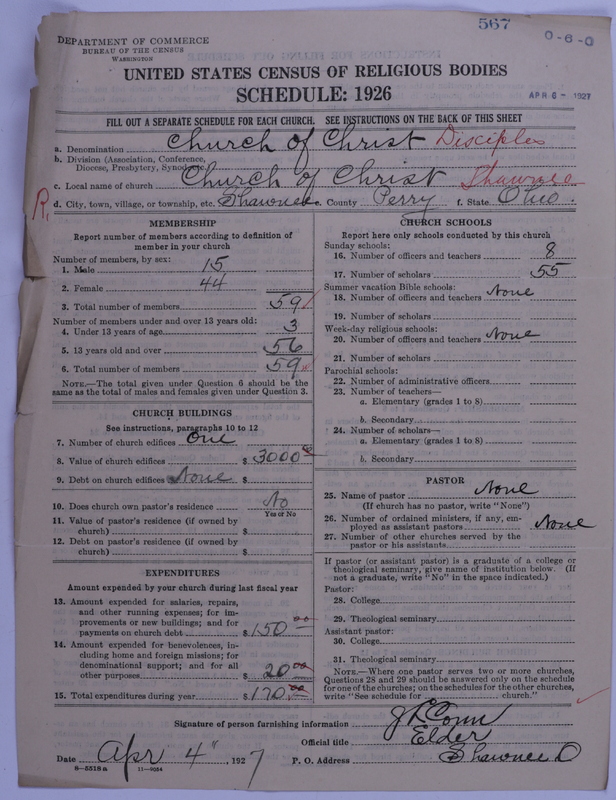 567
0-6-0
DEPARTMENT OF COMMERCE
BUREAU OF THE CENSUS
WASHINGTON
APR 6 - 1927
UNITED STATES CENSUS OF RELIGIOUS BODIES
SCHEDULE: 1926
FILL OUT A SEPARATE SCHEDULE FOR EACH CHURCH. SEE INSTRUCTIONS ON THE BACK OF THIS SHEET
a. Denomination Church of Christ Disciples
b. Division (Association, Conference, Diocese, Presbytery, Synod, etc.)
c. Local name of church Church of Christ Shawnee
R. d. City, town, village, or township, etc. Shawnee e. County Perry f. State Ohio
MEMBERSHIP
Report number of members according to definition of
member in your church
Number of members, by sex:
1. Male 15
2. Female 44
3. Total number of members 59
Number of members under and over 13 years old:
4. Under 13 years of age 3
5. 13 years old and over 56
6. Total number of members 59
NOTE.—The total given under Question 6 should be the
same as the total of males and females given under Question 3.
CHURCH BUILDINGS
See instructions, paragraphs 10 to 12
7. Number of church edifices One
8. Value of church edifices $ 3000 00
9. Debt on church edifices None $
10. Does church own pastor's residence No
Yes or No
11. Value of pastor's residence (if owned by
church) $
12. Debt on pastor's residence (if owned by
church) $
EXPENDITURES
Amount expended by your church during last fiscal year
13. Amount expended for salaries, repairs,
and other running expenses; for im-
provements or new buildings; and for
payments on church debt $ 150 00
14. Amount expended for benevolences, in-
cluding home and foreign missions; for
denominational support; and for all
other purposes $ 20 00
15. Total expenditures during year $ 170 00
CHURCH SCHOOLS
Report here only schools conducted by this church
Sunday schools:
16. Number of officers and teachers 8
17. Number of scholars 55
Summer vacation Bible schools:
18. Number of officers and teachers None
19. Number of scholars
Week-day religious schools:
20. Number of officers and teachers None
21. Number of scholars
Parochial schools:
22. Number of administrative officers
23. Number of teachers—
a. Elementary (grades 1 to 8)
b. Secondary
24. Number of scholars—
a. Elementary (grades 1 to 8)
b. Secondary
PASTOR
25. Name of pastor None
(If church has no pastor, write "None")
26. Number of ordained ministers, if any, em-
ployed as assistant pastors None
27. Number of other churches served by the
pastor or his assistants
If pastor (or assistant pastor) is a graduate of a college or
theological seminary, give name of institution below. (If
not a graduate, write "No" in the space indicated.)
Pastor:
28. College
29. Theological seminary
Assistant pastor:
30. College
31. Theological seminary
NOTE.—Where one pastor serves two or more churches,
Questions 28 and 29 should be answered only on the schedule
for one of the churches; on the schedules for the other churches,
write "See schedule for church."
Signature of person furnishing information J L Conn
Official title Elder
Date Apr 4", 1927 P. O. Address Shawnee O
8—5518 a 11—9054